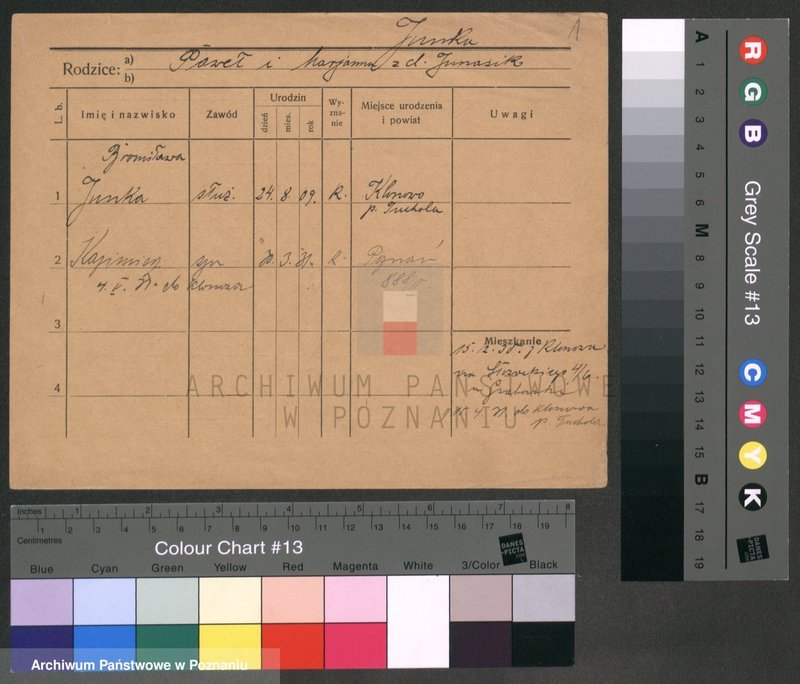 Junka
1
Rodzice: a) Paweł i Marjanna z d. Junasik
b)
L. b.
Imię i nazwisko
Zawód
Urodzin
dzień
mies.
rok
Wy-
zna-
nie
Miejsce urodzenia
i powiat
Uwagi
Bronisława
1 Junka służ. 24. 8. 09. R. Klonowo
p. Tuchola
2 Kazimierz syn 20. 3. 31. R. Poznań
888/
4. V. 31. do Klonowa
3
Mieszkanie
15. 2. 30. z Klonowa
na 4/6
4
u Grabowski
4. 31. do Klonowa
p. Tuchola
ARCHIWUM PAŃSTWOWE
W POZNANIU
Inches 1 2 3 4 5 6 7 8
1 2 3 4 5 6 7 8 9 10 11 12 13 14 15 16 17 18 19
Centimetres
Colour Chart #13
DANES
PICTA
.COM
Blue Cyan Green Yellow Red Magenta White 3/Color Black
Archiwum Państwowe w Poznaniu
A 1 2 3 4 5 6 M 8 9 10 11 12 13 14 15 B 17 18 19
R G B
Grey Scale #13
C M Y K
DANES
PICTA
.COM